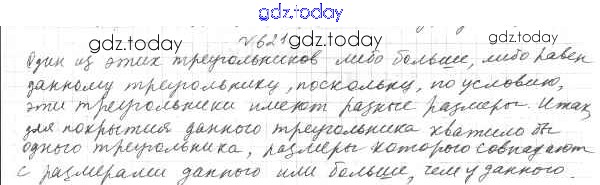 gdz.today
№621
gdz.today gdz.today
Один из этих треугольников либо больше, либо равен
данному треугольнику, поскольку, по условию,
эти треугольники имеют разные размеры. Итак,
для покрытия данного треугольника хватило бы
одного треугольника, размеры которого совпадают
с размерами данного или больше, чем у данного.
gdz.today gdz.today